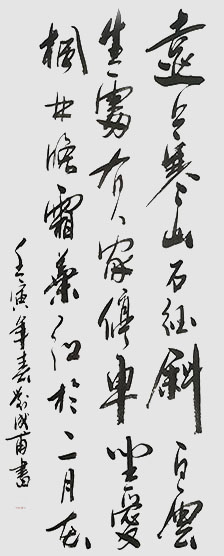 遠上寒山石徑斜白雲
生處有人家停車坐愛
楓林晚霜葉紅於二月花
壬寅年春成甫書